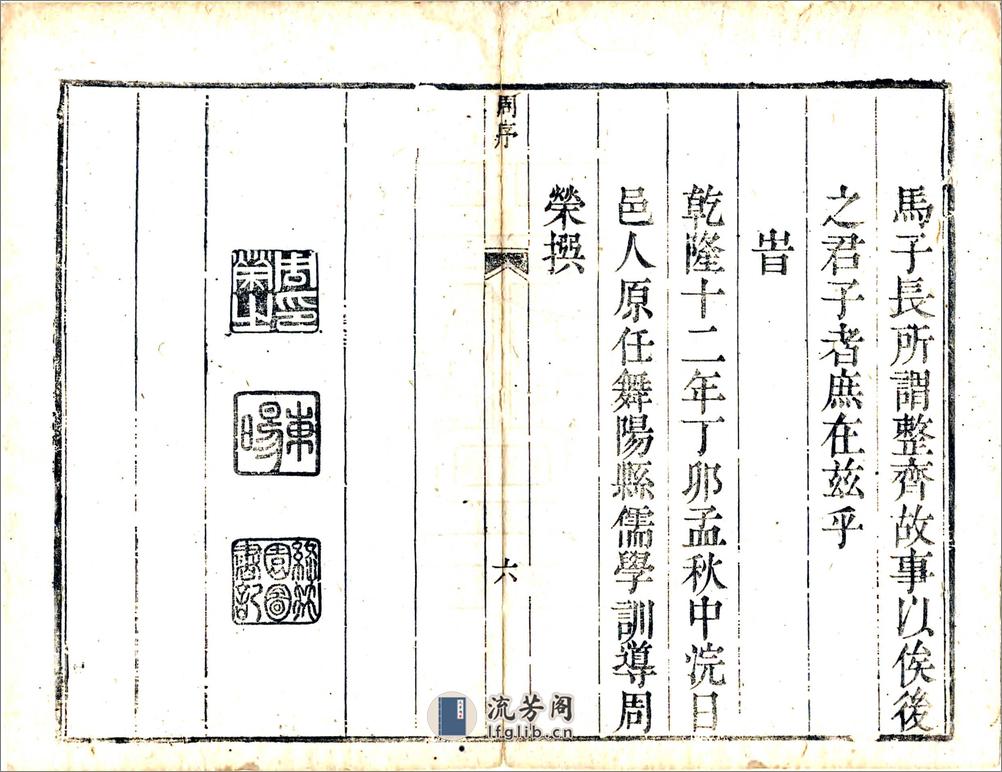 馬子長所謂整齊故事以俟後
之君子者庶在茲乎
旹
乾隆十二年丁卯孟秋中浣日
邑人原任舞陽縣儒學訓導周
榮撰
周序
六
東陽
流芳阁
lfglib.cn